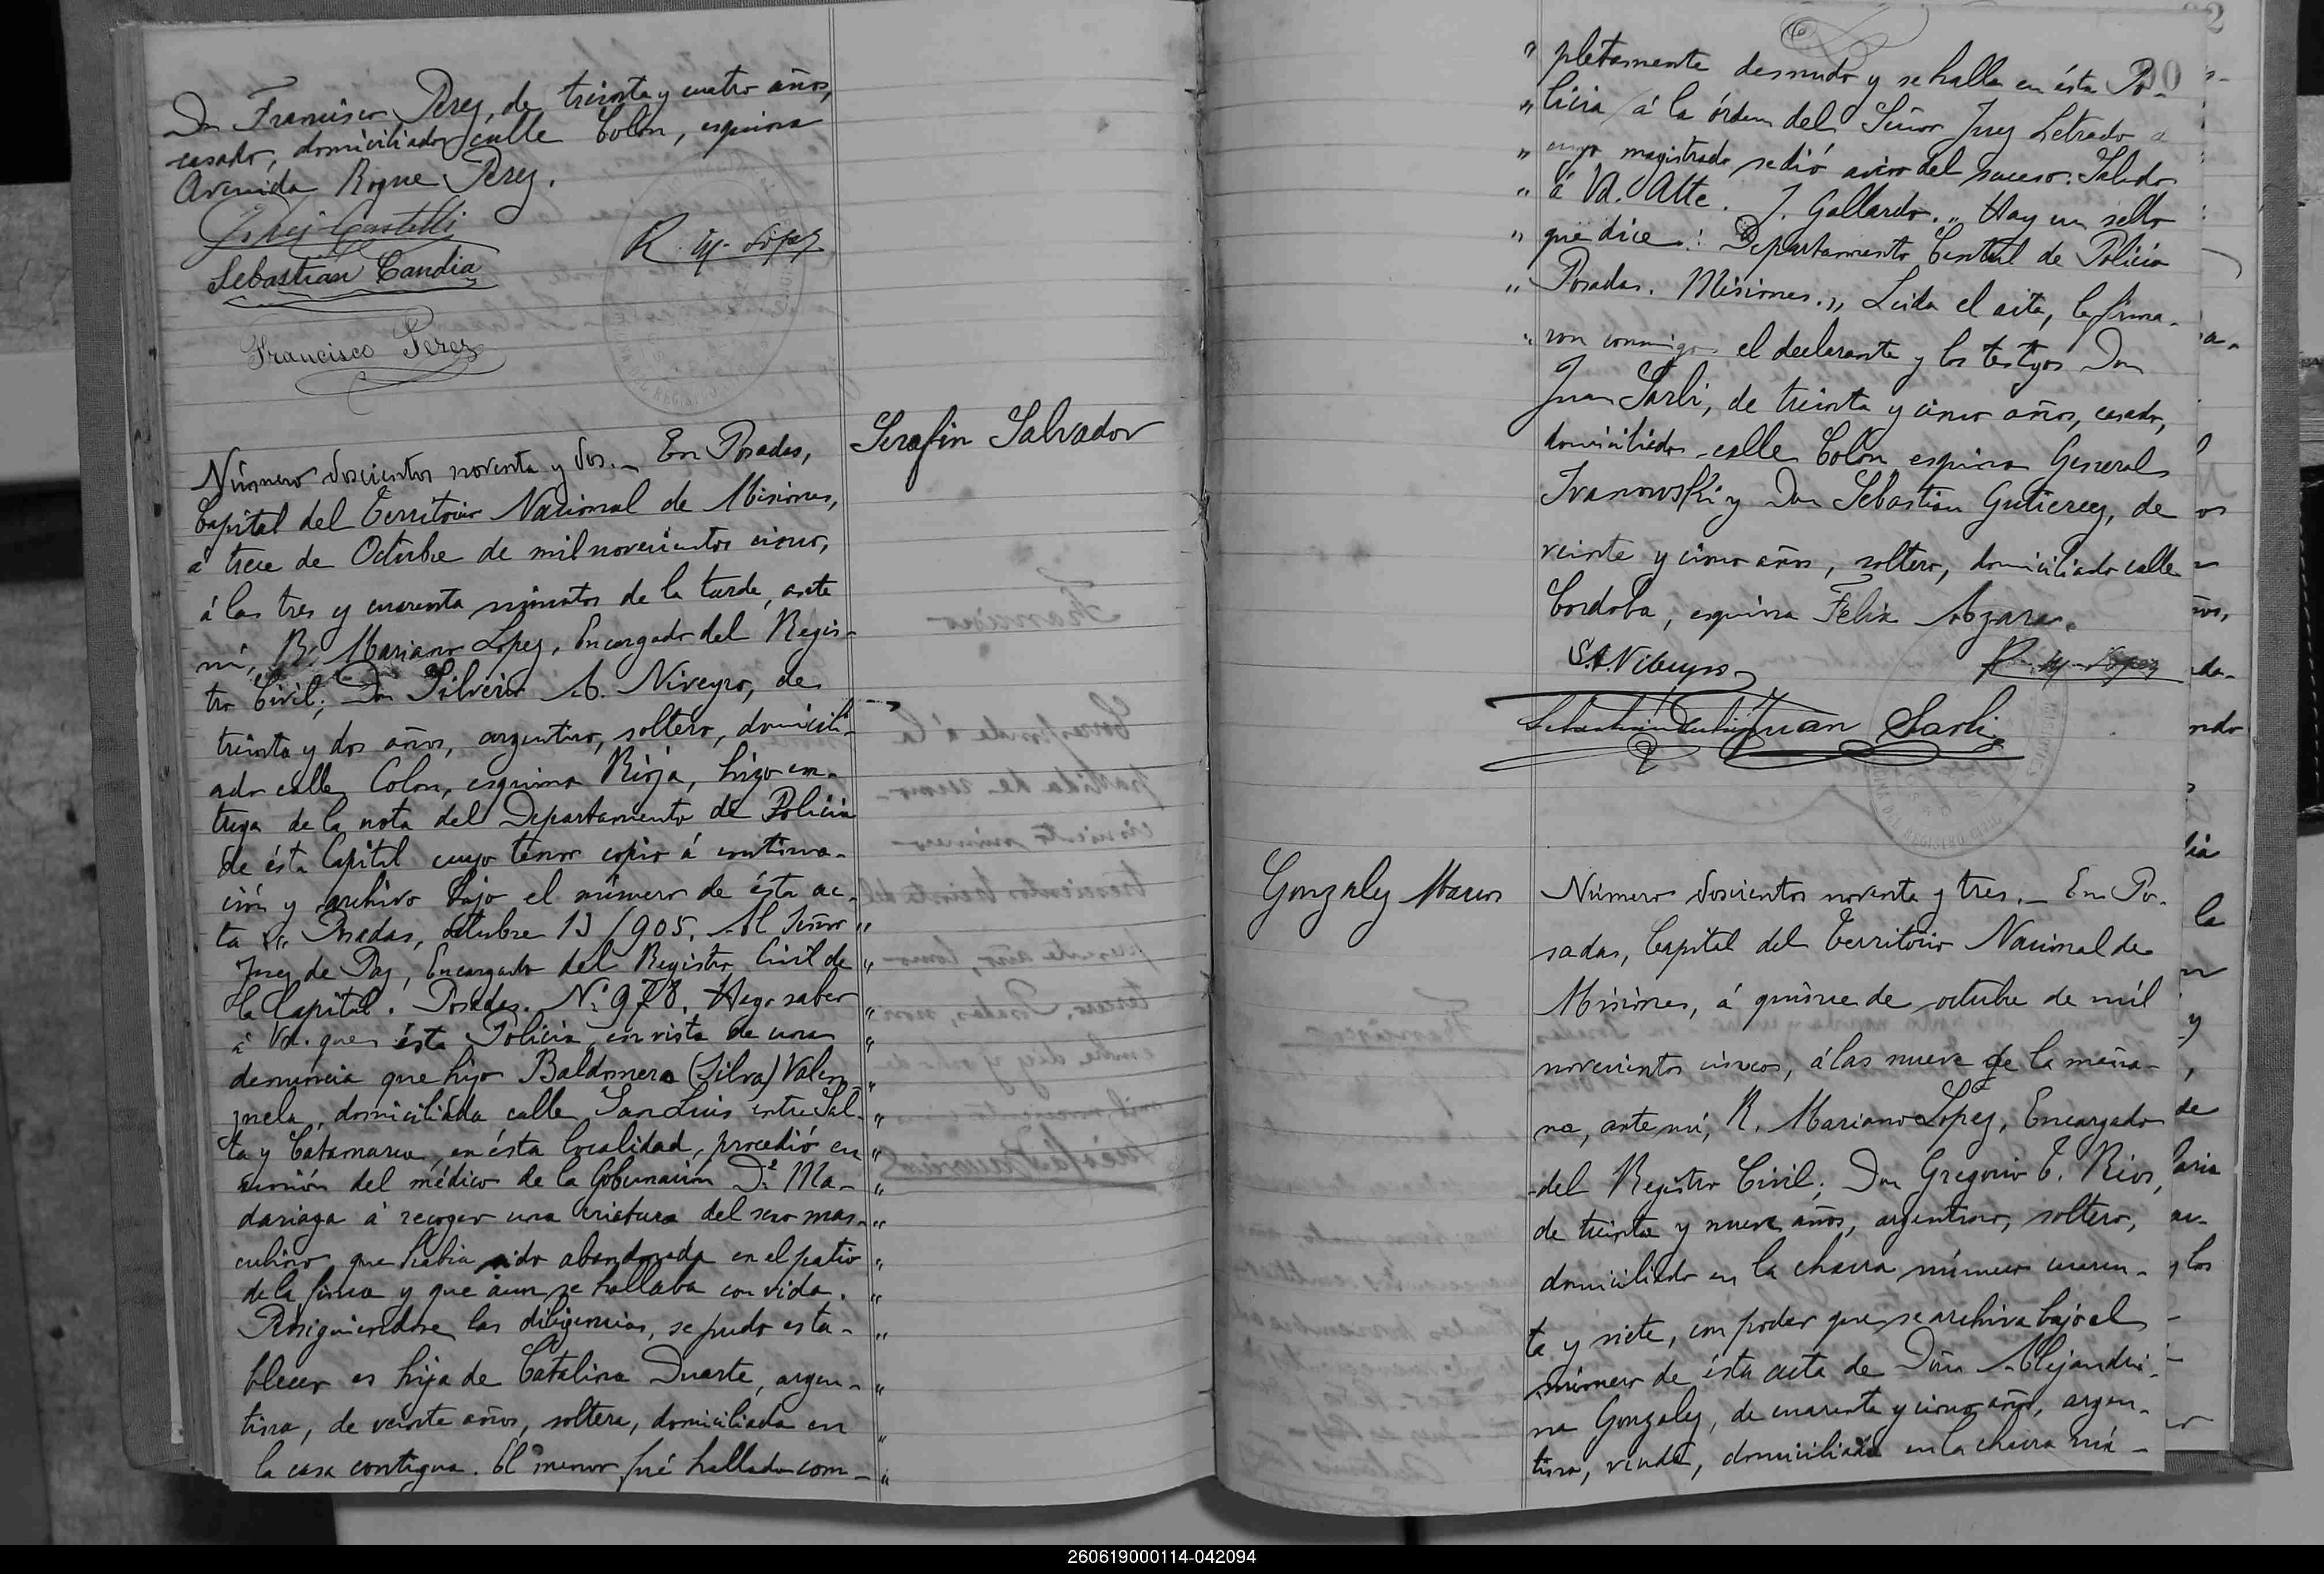 Don Francisco Perez, de treinta y cuatro años,
casado, domiciliado calle Colón, esquina
Avenida Roque Perez.
Castelli
R. M. Lopez
Sebastian Candia
Francisco Perez
Serafin Salvador
Número doscientos noventa y dos._ En Posadas,
Capital del Territorio Nacional de Misiones,
á trece de Octubre de mil novecientos cinco,
á las tres y cuarenta minutos de la tarde, ante
mi, R. Mariano Lopez, Encargado del Regis-
tro Civil; Don Silverio A. Niveyro, de
treinta y dos años, argentino, soltero, domicili-
ado calle Colon, esquina Rioja, hizo en-
trega de la nota del Departamento de Policia
de ésta Capital cuyo tenor copio á continua-
ción y archivo bajo el número de ésta ac-
ta „ Posadas, octubre 13/905. Al Señor „
Juez de Paz, Encargado del Registro Civil de „
la Capital. Posadas. Nº 978. Hago saber „
á Vd. que ésta Policia, en vista de una „
denuncia que hizo Baldomera (Silva) Valen- „
zuela, domiciliada calle San Luis entre Sal- „
ta y Catamarca, en ésta localidad, procedió en „
unión del médico de la Gobernación Dr. Ma- „
dariaga á recoger una criatura del sexo mas- „
culino que habia sido abandonada en el patio „
de la finca y que aun se hallaba con vida. „
Prosiguiendose las diligencias, se pudo esta- „
blecer es hijo de Catalina Duarte, argen- „
tina, de veinte años, soltera, domiciliada en „
la casa contigua. El menor fué hallado com- „
„ pletamente desnudo y se halla en ésta Po-
„ licia á la órden del Señor Juez Letrado a
„ cuyo magistrado se dió aviso del suceso. Saludo
„ á Vd. Atte. J. Gallardo. „ Hay un sello
„ que dice: Departamento Central de Policia
„ Posadas. Misiones. „ Leida el acta, la firma-
ron conmigo el declarante y los testigos Don
Juan Sarli, de treinta y cinco años, casado,
domiciliado calle Colón esquina General
Ivanowski y Don Sebastian Gutierrez, de
veinte y cinco años, soltero, domiciliado calle
Cordoba, esquina Felix Azara.
S. A. Niveyro
R. M. Lopez
Juan Sarli
Gonzalez Marcos
Número doscientos noventa y tres._ En Po-
sadas, Capital del Territorio Nacional de
Misiones, á quince de octubre de mil
novecientos cinco, á las nueve de la maña-
na, ante mi, R. Mariano Lopez, Encargado
del Registro Civil; Don Gregorio T. Rios,
de treinta y nueve años, argentino, soltero,
domiciliado en la chacra número cuaren-
ta y siete, con poder que se archiva bajo el
número de ésta acta de Doña Alejandri-
na Gonzalez, de cuarenta y cinco años, argen-
tina, viuda, domiciliada en la chacra nú-
260619000114-042094